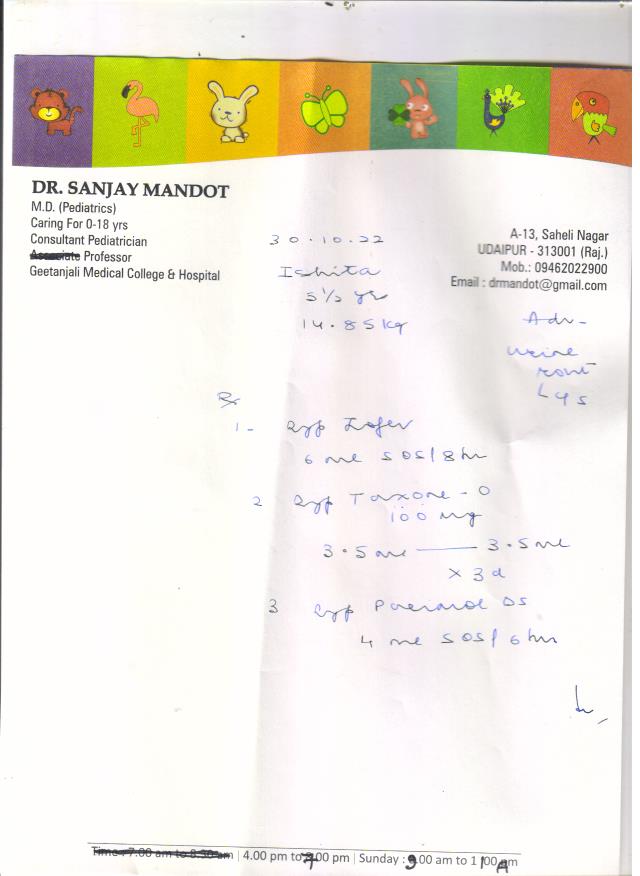 DR. SANJAY MANDOT
M.D. (Pediatrics)
Caring For 0-18 yrs
Consultant Pediatrician
Associate Professor
Geetanjali Medical College & Hospital
A-13, Saheli Nagar
UDAIPUR - 313001 (Raj.)
Mob.: 09462022900
Email : drmandot@gmail.com
30.10.22
Ishita
5½ yr
14.85 kg
Adv-
Urine
Rout
Rx
1- Syp
6 ml SOS/8 hr
2 Syp Taxone-O
100 mg
3.5 ml — 3.5 ml
x 3d
3 Syp DS
4 ml SOS/6 hr
Time : 7.00 am to 8.30 am | 4.00 pm to 7.00 pm | Sunday : 9.00 am to 11.00 am